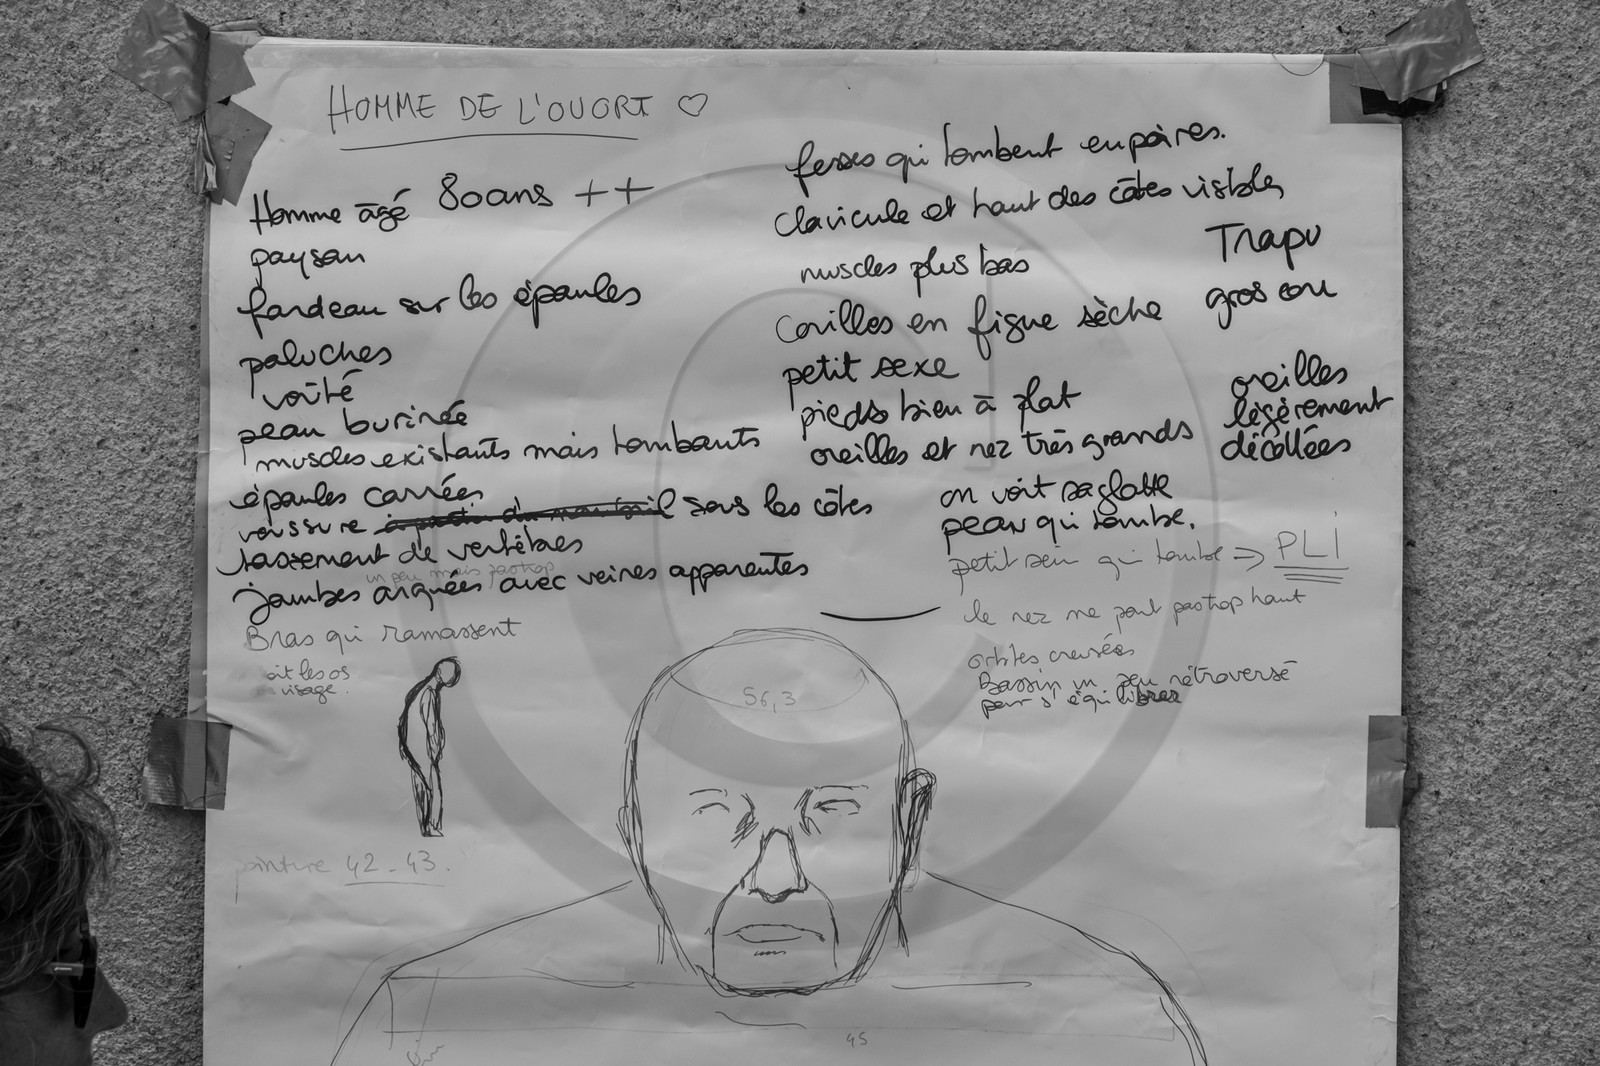 HOMME DE L'OUORT ♡
Homme âgé 80ans ++
paysan
fardeau sur les épaules
paluches
voûté
peau burinée
muscles existants mais tombants
épaules carrées
voussure sous les côtes
tassement de vertèbres
un peu mais pas trop
jambes arquées avec veines apparentes
Bras qui ramassent
oit les os
visage.
pointure 42-43.
fesses qui tombent en poires.
clavicule et haut des côtes visibles
muscles plus bas
Couilles en figue sèche
petit sexe
pieds bien à plat
oreilles et nez très grands
on voit sa glotte
peau qui tombe.
petit sein qui tombe → PLI
le nez ne part pas trop haut
orbites creusées
Bassin un peu rétroversé
pour s'équilibrer
Trapu
gros cou
oreilles
légèrement
décollées
56,3
45